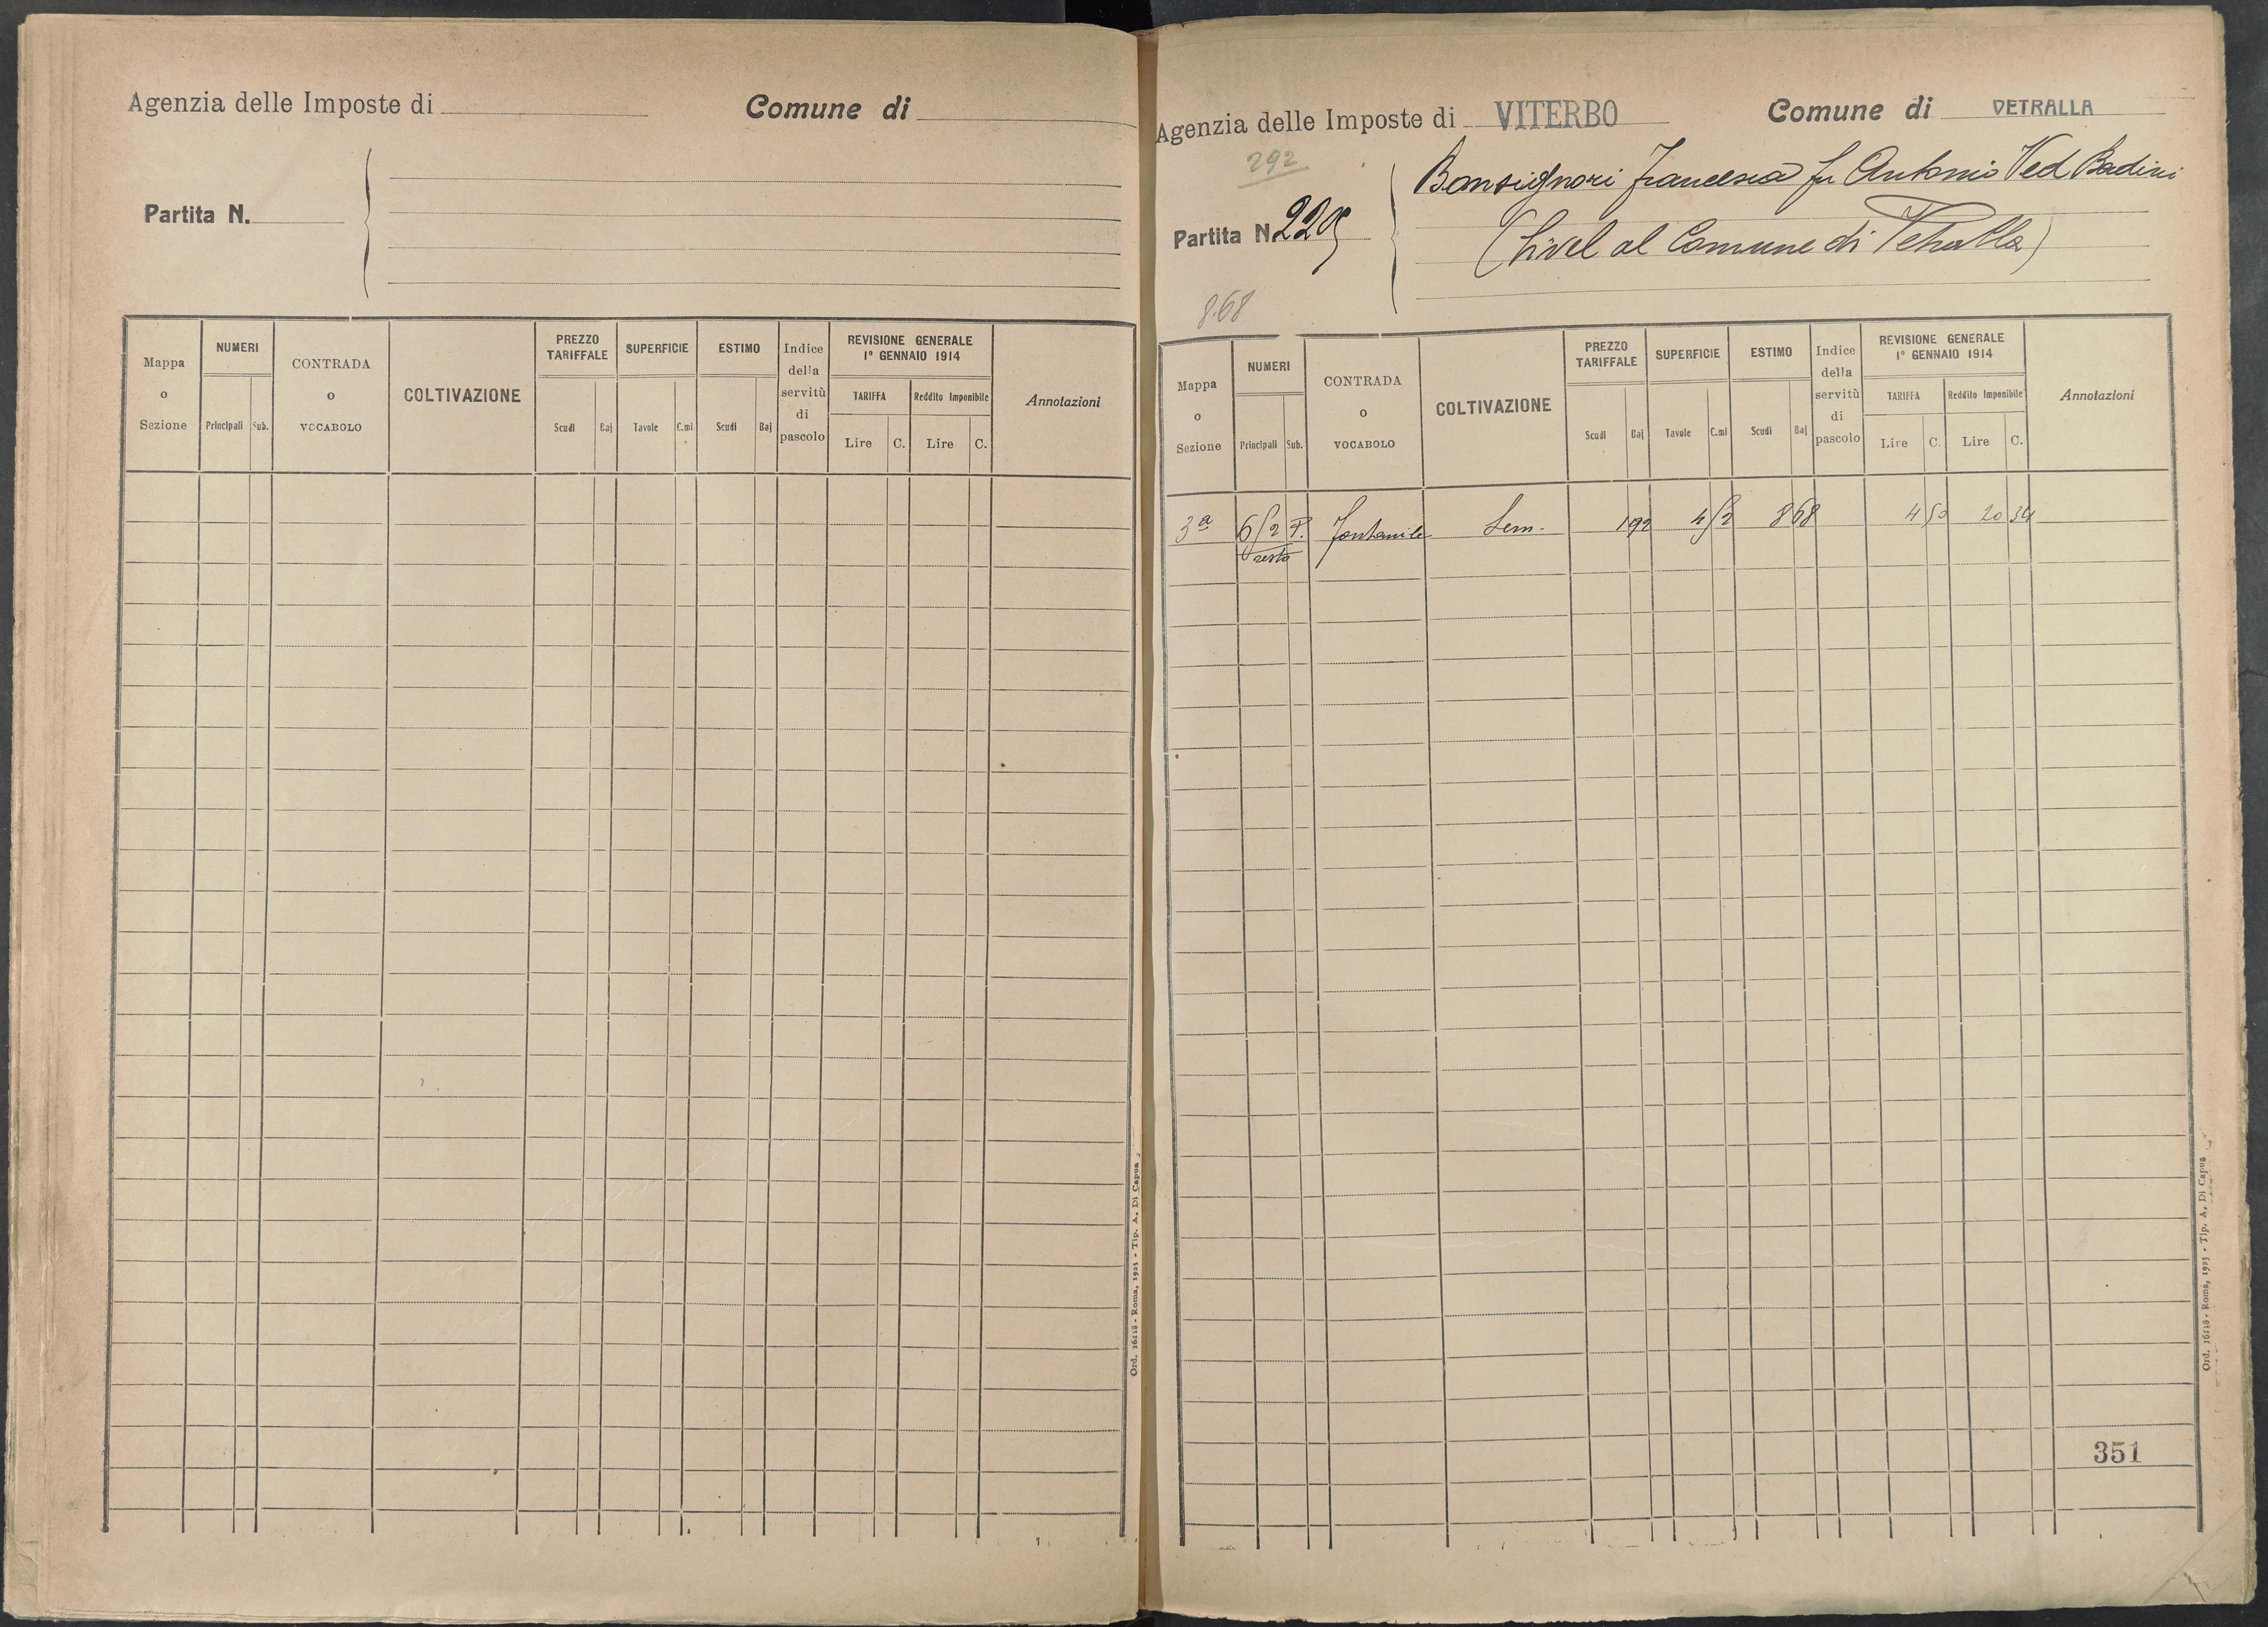 Agenzia delle Imposte di
Comune di
Partita N.
Mappa o Sezione
NUMERI
Principali
Sub.
CONTRADA o VOCABOLO
COLTIVAZIONE
PREZZO TARIFFALE
Scudi
Baj
SUPERFICIE
Tavole
C.mi
ESTIMO
Scudi
Baj
Indice della servitù di pascolo
REVISIONE GENERALE
1° GENNAIO 1914
TARIFFA
Lire
C.
Reddito Imponibile
Lire
C.
Annotazioni
Ord. 16118 - Roma, 1923 - Tip. A. Di Capua
Agenzia delle Imposte di VITERBO
Comune di VETRALLA
292
Partita N. 2205
Bonsignori Francesca fu Antonio Ved Badini
(livel al Comune di Vetralla)
8.68
Mappa o Sezione
NUMERI
Principali
Sub.
CONTRADA o VOCABOLO
COLTIVAZIONE
PREZZO TARIFFALE
Scudi
Baj
SUPERFICIE
Tavole
C.mi
ESTIMO
Scudi
Baj
Indice della servitù di pascolo
REVISIONE GENERALE
1° GENNAIO 1914
TARIFFA
Lire
C.
Reddito Imponibile
Lire
C.
Annotazioni
3ª 652 Fontanile Sem. 1 92 4 52 8 68 4 50 20 34
resto
351
Ord. 16118 - Roma, 1923 - Tip. A. Di Capua